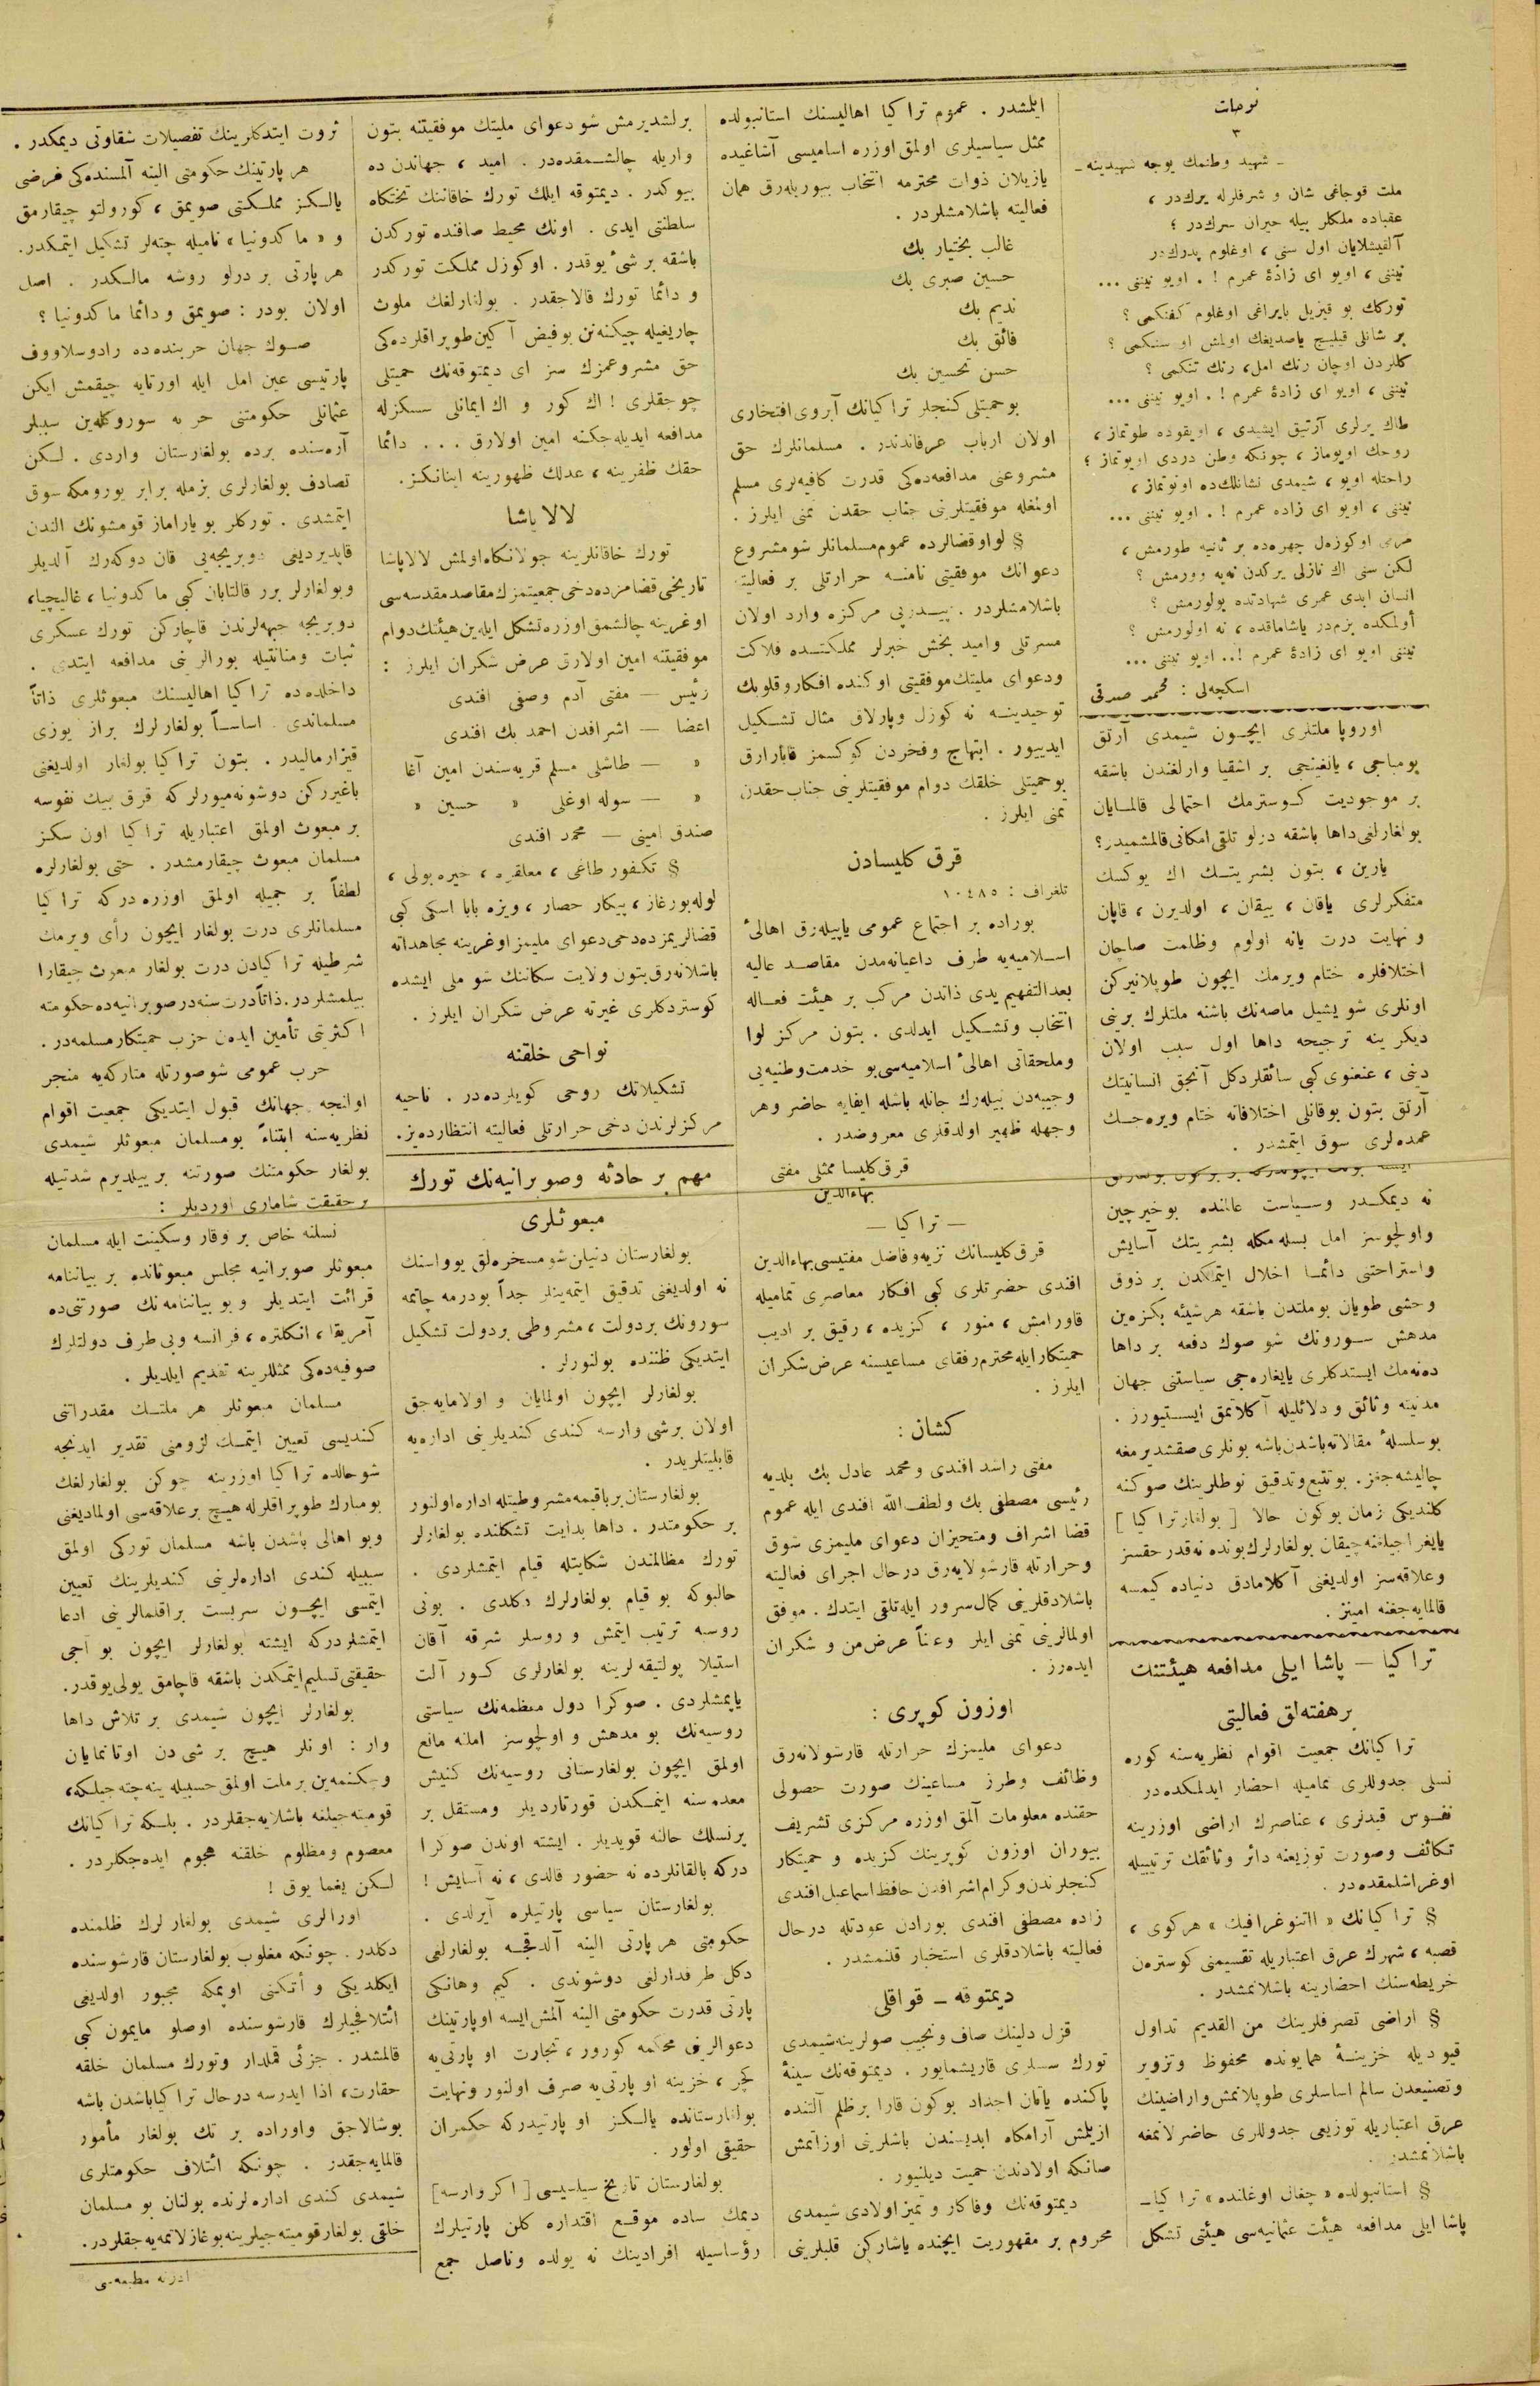 نوحات
٣
ـ شهید وطنمك یوجه شهیدینه ـ
ملت قوجاغی شان و شرفلرله یرك‌در ،
عقباده ملكلر بیله حیران سرك‌در ؛
آلقیشلایان اول سنی ، اوغلوم پدرك‌در
نیننی ، اویو ای زادۀ عمرم ! . اویو نیننی ...
توركك بو قیزیل بایراغی اوغلوم كفنكمی ؟
بر شانلی قیلیچ یاصدیغك اولمش او سنكمی ؟
كللردن اوچان رنك امل، رنك تنكمی ؟
نیننی ، اویو ای زادۀ عمرم ! . اویو نیننی ...
طاك یرلری آرتیق ایشیدی ، اویقوده طوتماز ،
روحك اویوماز ، چونكه وطن دردی اویوتماز ؛
راحتله اویو ، شیمدی نشانلك‌ده اونوتماز ،
نیننی ، اویو ای زاده عمرم ! . اویو نیننی ...
اوكوزه‌ل چهره‌ده بر ثانیه طورمش ،
لكن سنی اك نازلی یركدن نه‌یه وورمش ؟
انسان ابدی عمری شهادتده بولورمش ؟
أولمكده بزم‌در یاشاماقده ، نه اولورمش ؟
نیننی اویو ای زادۀ عمرم !.. اویو نیننی ...
اسكیجه‌لی : محمد صدقی
اوروپا ملتلری ایچـون شیمدی آرتق
یومباجی ، یانغنجی بر اشقیا وارلغندن باشقه
بر موجودیت كـوسترمك احتمالی قالمـایان
بولغارلغی داها باشقه درلو تلقی امكانی قالمشمیدر؟
یارین ، بتون بشریتـك اك یوكسك
متفكرلری یاقان ، ییقان ، اولدیرن ، قاپان
و نهایت درت یانه اولوم وظلمت صاچان
اختلافلره ختام ویرمك ایچون طوپلانیركن
اونلری شو یشیل ماصه‌نك باشنه ملتلرك برینی
دیكرینه ترجیحه داها اول سبب اولان
دینی ، عنعنوی كبی سائقلردكل آنجق انسانیتك
آرتق بتون بوقانلی اختلافاته ختام ویره‌جـك
عمده‌لری سوق ایتمشدر .
نه دیمكـدر وسـیاست عالمنده بوخیرچین
واولچوسز امل بسله‌مكله بشریتك آسایش
واستراحتنی دائمـا اخلال ایتمكدن بر ذوق
وحشی طویان بوملتدن باشقه هرشیئه بكزه‌ین
مدهش سـورونك شو صوك دفعه بر داها
ده‌نه‌مك ایستدكلری یایغاره‌جی سیاستنی جهان
مدنیته وثائق و دلائلیله آكلاتمق ایسـتیورز .
بوسلسلۀ مقالاته‌باشدن‌باشه بونلری صقشدیرمغه
چالیشه‌جغز. بوتتبع‌وتدقیق نوطلرینك صوكنه
كلندیكی زمان بوكون حالا [ بولغارتراكیا ]
یایغراجیلغنه‌چیقان بولغارلرك‌بونده نه‌قدرحقسز
وعلاقه‌سز اولدیغنی آكلامادق دنیاده كیمسه
قالمایه‌جغنه امینز .
تراكیا — پاشا ایلی مدافعه هیئتنك
برهفته‌لق فعالیتی
تراكیانك جمعیت اقوام نظریه‌سنه كوره
نسلی جدوللری تمامیله احضار ایدلمكده‌در
نفـوس قیدلری ، عناصرك اراضی اوزرینه
تكاثف وصورت توزیعنه دائر وثائقك ترتیبیله
اوغراشلمقده‌در .
§ تراكیانك « اتنوغرافیك » هركوی ،
قصبه ، شهرك عرق اعتباریله تقسیمنی كوسترەن
خریطه‌سنك احضارینه باشلانمشدر .
§ اراضی تصرفلرینك من القدیم تداول
قیودیله خزینـۀ همایونده محفوظ وتزویر
وتصنیعدن سالم اساسلری طوپلانمش‌واراضینك
عرق اعتباریله توزیعی جدوللری حاضرلانمغه
باشلانمشدر .
§ استانبولده « جغال اوغلنده » تراكیا —
پاشا ایلی مدافعه هیئت عثمانیه‌سی هیئتی تشكل
ایلمشدر . عموم تراكیا اهالیسنك استانبولده
ممثل سیاسیلری اولمق‌اوزره اسامیسی آشاغیده
یازیلان ذوات محترمه انتخاب بیوریله‌رق همان
فعالیته باشلامشلردر .
غالب بختیار بك
حسین صبری بك
ندیم بك
فائق بك
حسن تحسین بك
بوحمیتلی‌كنجلر تراكیانك آبروی‌افتخاری
اولان ارباب عرفاندندر . مسلمانلرك حق
مشروعنی مدافعه‌ده‌كی قدرت كافیه‌لری مسلم
اولمغله موفقیتلرینی جناب حقدن تمنی ایلرز .
§ لواوقضالرده عموم‌مسلمانلر شومشروع
دعوانك موفقیتی نامنـه حرارتلی بر فعالیته
باشلامشلردر . پیـدرپی مركزه وارد اولان
مسرتلی وامید بخش خبرلر مملكتـده فلاكت
ودعوای ملیتك‌موفقیتی اوكنده افكاروقلوبك
توحیدینـه نه كوزل وپارلاق مثال تشـكیل
ایدییور . ابتهاج وفخردن كوكسمز قابارارق
بوحمیتلی خلقك دوام موفقیتلرینی جناب‌حقدن
تمنی ایلرز .
قرق كلیسادن
تلغراف : ١٠٤٨٥
بوراده بر اجتماع عمومی یاپیله‌رق اهالئ
اسـلامیه‌یه طرف داعیانه‌مدن مقاصـد عالیه
بعدالتفهیم یدی ذاتدن مركب بر هیئت فعـاله
انتخاب وتشـكیل ایدلدی . بتون مركز لوا
وملحقاتی اهالئ اسلامیه‌سی‌بو خدمت‌وطنیه‌یی
وجیبه‌دن بیله‌رك جانله باشله ایفایه حاضر وهر
وجهله ظهیر اولدقلری معروضدر .
قرق‌كلیسا ممثلی مفتی
بهاءالدین
— تراكیا —
قرق‌كلیسانك نزیه‌وفاضل مفتیسی‌بهاءالدین
افندی حضرتلری كبی افكار معاصری تمامیله
قاورامش ، منور ، كزیده ، رقیق بر ادیب
حمیتكارایله‌محترم‌رفقای مساعیسنه عرض‌شكران
ایلرز .
كشان :
مفتی راشد افندی و محمد عادل بك بلدیه
رئیسی مصطفی بك ولطف‌الله افندی ایله عموم
قضا اشراف ومتحیزان دعوای ملیمزی شوق
وحرارتله قارشولایه‌رق درحال اجرای فعالیته
باشلادقلرینی كمال‌سرور ایله‌تلقی ایتدك . موفق
اولمالرینی تمنی ایلر وعلناً عرض‌من و شكران
ایده‌رز .
اوزون كوپری :
دعوای ملیمزك حرارتله قارشولانه‌رق
وظائف وطرز مساعینك صورت حصولی
حقنده معلومات آلمق اوزره مركزی تشریف
بیوران اوزون كوپرینك كزیده و حمیتكار
كنجلرندن‌وكرام‌اشرافدن حافظ‌اسماعیل‌افندی
زاده مصطفی افندی بورادن عودتله درحال
فعالیته باشلادقلری استخبار قلنمشدر .
دیمتوقه ـ قواقلی
قزل دلینك صاف ونجیب صولرینه‌شیمدی
تورك سسلری قاریشمایور . دیمتوقه‌نك سینۀ
پاكنده یاتان اجداد بوكون قارا برظلم آلتنده
ازیلمش آرامكاه ابدیسندن باشلرینی اوزاتمش
صانكه اولادندن حمیت دیلنیور .
دیمتوقه‌نك وفاكار و تمیزاولادی شیمدی
محروم بر مقهوریت ایچنده یاشاركن قلبلرینی
برلشدیرمش شو دعوای ملیتك موفقیتنه بتون
واریله چالشـمقده‌در . امید ، جهاندن ده
بیوكدر . دیمتوقه ایلك تورك خاقاننك تختكاه
سلطنتی ایدی . اونك محیط صافنده توركدن
باشقه برشیٔ یوقدر . اوكوزل مملكت توركدر
و دائما تورك قالاجقدر . بولغارلغك ملوث
چاریغیله چیكنه‌نن بوفیض آكین‌طوپراقلرده‌كی
حق مشروعمزك سز ای دیمتوقه‌نك حمیتلی
چوجقلری ! اك كور و اك‌ایمانلی سسكزله
مدافعه ایدیله‌جكنه امین اولارق ... دائما
حقك ظفرینه ، عدلك ظهورینه اینانكز.
لالا پاشا
تورك خاقانلرینه جولانكاه‌اولمش لالاپاشا
تاریخی قضامزده‌دخی جمعیتمزك‌مقاصدمقدسه‌سی
اوغرینه چالشمق‌اوزره‌تشكل ایلەین‌هیئتك‌دوام
موفقیتنه امین اولارق عرض شكران ایلرز :
رئیس — مفتی آدم وصفی افندی
اعضا — اشرافدن احمد بك افندی
» — طاشلی مسلم قریه‌سندن امین آغا
» — سوله اوغلی » حسین »
صندق امینی — محمد افندی
§ تكفور طاغی ، معلقره ، خیره‌بولی ،
لوله‌بورغاز ، بیكار حصار ، ویزه بابا اسكی كبی
قضالریمزده‌دخی‌دعوای ملیمز اوغرینه مجاهداته
باشلانه‌رق‌بتون ولایت سكاننك شو ملی ایشده
كوستردكلری غیرته عرض شكران ایلرز .
نواحی خلقنه
تشكیلاتك روحی كویلرده‌در . ناحیه
مركزلرندن دخی حرارتلی فعالیته انتظارده‌یز.
مهم بر حادثه وصوبرانیه‌نك تورك
مبعوثلری
بولغارستان دنیلن‌شومسخره‌لق یوواسنك
نه اولدیغنی تدقیق ایتمه‌ینلر جداً بودرمه چاتمه
سورونك بردولت ، مشروطی بردولت تشكیل
ایتدیكی ظننده بولنورلر .
بولغارلر ایچون اولمایان و اولامایه‌جق
اولان برشی وارسه كندی كندیلرینی اداره‌یه
قابلیتلریدر .
بولغارستان‌برباقیمه‌مشروطیتله اداره‌اولنور
بر حكومتدر . داها بدایت تشكلنده بولغارلر
تورك مظالمندن شكایتله قیام ایتمشلردی .
حالبوكه بو قیام بولغارلرك دكلدی . بونی
روسه ترتیب ایتمش و روسلر شرقه آقان
استیلا پولتیقه‌لرینه بولغارلری كـور آلت
یاپمشلردی . صوكرا دول معظمه‌نك سیاستی
روسیه‌نك بو مدهش و اولچوسز املنه مانع
اولمق ایچون بولغارستانی روسیه‌نك كنیش
معده‌سنه ایتمـكدن قورتاردیلر ومستقل بر
پرنسلك حالنه قویدیلر . ایشته اوندن صوكرا
دركه بالقانلرده نه حضور قالدی ، نه آسایش !
بولغارستان سیاسی پارتیلره آیرلدی .
حكومتی هر پارتی الینه آلدقجـه بولغارلغی
دكل طرفدارلغی دوشوندی . كیم وهانكی
پارتی قدرت حكومتی الینه آلمش‌ایسه اوپارتینك
دعوالرینی محكمه كورور ، تجارت او پارتی‌یه
كچر ، خزینه او پارتی‌یه صرف اولنور ونهایت
بولغارستانده یالـكز او پارتیدركه حكمران
حقیقی اولور .
بولغارستان تاریخ سیاسیسی [ اكر وارسه ]
دیمك ساده موقـع اقتداره كلن پارتیلرك
رؤساسیله افرادینك نه یولده وناصل جمع
ثروت ایتدكلرینك تفصیلات شقاوتی دیمكدر .
هرپارتینك حكومتی الینه آلمسنده‌كی غرضی
یالـكز مملـكتی صویمق ، كورولتو چیقارمق
و « ماكدونیا » نامیله چته‌لر تشكیل ایتمكدر.
هرپارتی بر درلو روشه مالـكدر . اصل
اولان بودر : صویمق و دائما ماكدونیا ؟
صـوك جهان حربنده‌ده رادوسلاووف
پارتیسی عین امل ایله اورتایه چیقمش ایكن
عثمانلی حكومتنی حربه سوروكله‌ین سببلر
آره‌سنده برده بولغارستان واردی . لـكن
تصادف بولغارلری بزمله برابر یورومكه سوق
ایتمشدی . توركلر بویاراماز قومشونك الندن
قاپدیردیغی دوبریجه‌یی قان دوكه‌رك آلدیلر
وبولغارلر برر قالتابان كبی ماكدونیا ، غالیچیا،
دوبریجه جبهه‌لرندن قاچاركن تورك عسكری
ثبات ومتانتیله بورالرینی مدافعه ایتدی .
داخلده‌ده تراكیا اهالیسنك مبعوثلری ذاتاً
مسلماندی . اساسـاً بولغارلرك براز یوزی
قیزارمالیدر . بتون تراكیا بولغار اولدیغنی
باغیرركن دوشونه‌میورلركه قرق بیك نفوسه
بر مبعوث اولمق اعتباریله تراكیا اون سكز
مسلمان مبعوث چیقارمشدر . حتی بولغارلره
لطفاً بر جمیله اولمق اوزره‌دركه تراكیا
مسلمانلری درت بولغار ایچون رأی ویرمك
شرطیله تراكیادن درت بولغار مبعوث چیقارا
بیلمشلردر. ذاتاًدرت‌سنه‌درصوبرانیه‌ده‌حكومته
اكثریتی تأمین ایدەن حزب حمیتكارمسلمه‌در .
حرب عمومی شوصورتله متاركه‌یه منجر
اولنجه جهانك قبول ایتدیكی جمعیت اقوام
نظریه‌سنه ابتناءً بومسلمان مبعوثلر شیمدی
بولغار حكومتنك صورتنه بر ییلدیرم شدتیله
برحقیقت شاماری اوردیلر :
نسلنه خاص بر وقار وسكینت ایله مسلمان
مبعوثلر صوبرانیه مجلس مبعوثانده بر بیاننامه
قرائت ایتدیلر وبو بیاننامه‌نك صورتنی‌ده
آمریقا ، انكلتره ، فرانسه وبی طرف دولتلرك
صوفیه‌ده‌كی ممثللرینه تقدیم ایلدیلر .
مسلمان مبعوثلر هر ملتـك مقدراتنی
كندیسی تعیین ایتمـك لزومنی تقدیر ایدنجه
شوحالده تراكیا اوزرینه چوكن بولغارلغك
بومبارك طوپراقلرله هیـچ برعلاقه‌سی اولمادیغنی
وبو اهالی باشدن باشه مسلمان توركی اولمق
سببیله كندی اداره‌لرینی كندیلرینك تعیین
ایتمسی ایچـون سربست براقلمالرینی ادعا
ایتمشلردركه ایشته بولغارلر ایچون بو آجی
حقیقتی‌تسلیم‌ایتمكدن باشقه قاچامق یولی‌یوقدر.
بولغارلر ایچون شیمدی بر تلاش داها
وار : اونلر هیـچ بر شی دن اوتانمایان
وچكنمه‌ین برملت اولمق حسبیله ینه‌چته‌جیلكه،
قومیته‌جیلغه باشلایه‌جقلردر . بلـكه تراكیانك
معصوم ومظلوم خلقنه هجوم ایده‌جكلردر .
لـكن یغما یوق !
اورالری شیمدی بولغارلرك ظلمنده
دكلدر . چونكه مغلوب بولغارستان قارشوسنده
ایكلدیكی و أتكنی اوپمكه مجبور اولدیغی
ائتلافجیلرك قارشوسنده اوصلو مایمون كبی
قالمشدر . جزئی قملدار وتورك مسلمان خلقه
حقارت، اذا ایدرسه درحال تراكیاباشدن باشه
بوشالاجق واوراده بر تك بولغار مأمور
قالمایه‌جقدر . چونكه ائتلاف حكومتلری
شیمدی كندی اداره‌لرنده بولنان بو مسلمان
خلقی بولغارقومیته‌جیلرینه‌بوغازلاتمه‌یه‌جقلردر.
ادرنه مطبعه‌سی